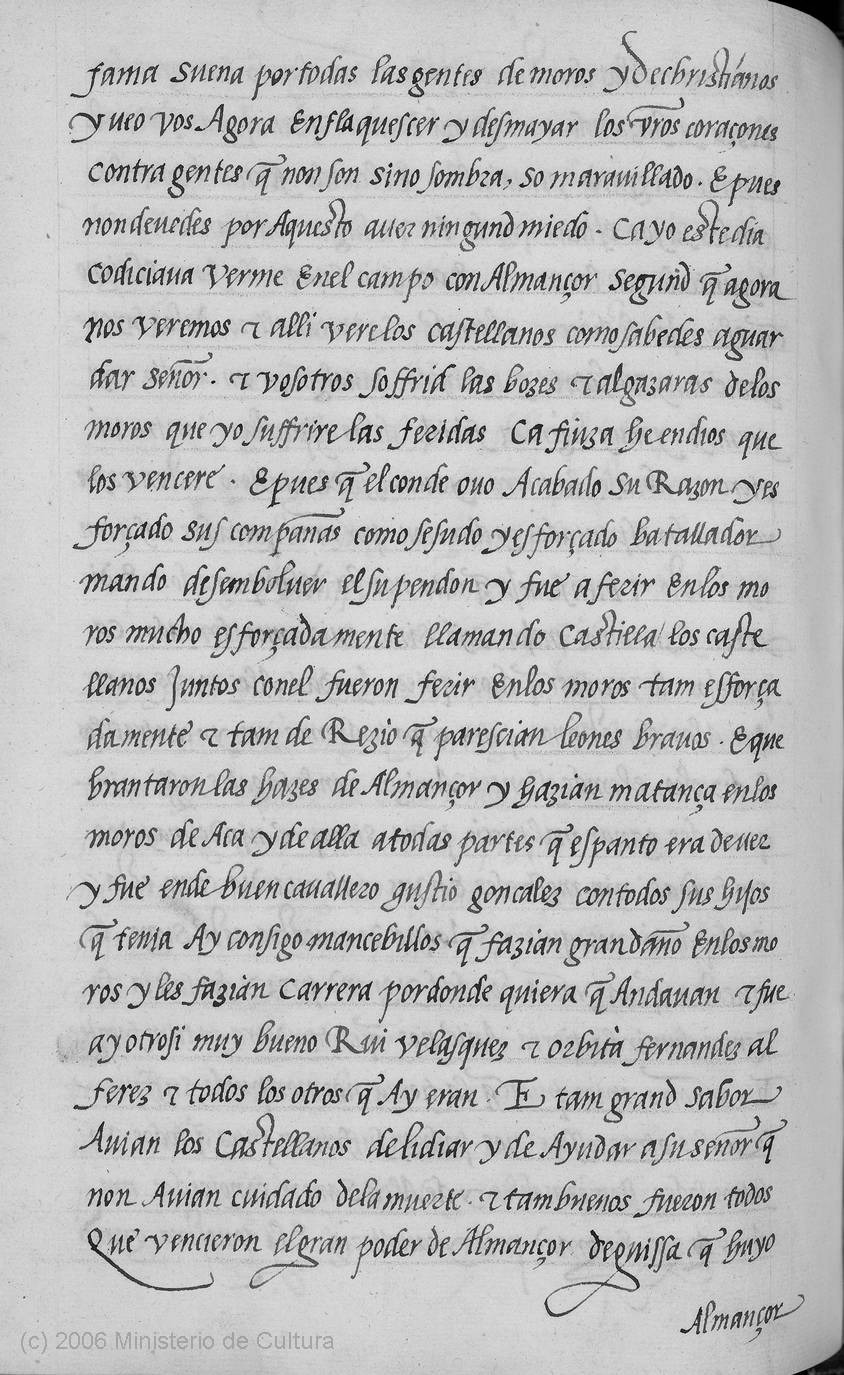 fama suena por todas las gentes de moros y de christianos
y veo vos Agora Enflaquescer y desmayar los vr̃os coraçones
contra gentes q̃ non son sino sombra, so maravillado. E pues
non devedes por Aquesto aver ningund miedo. Ca yo este dia
codiciava verme Enel campo con Almançor segund q̃ agora
nos veremos ⁊ alli vere los castellanos como sabedes aguar
dar señor. ⁊ vosotros soffrid las bozes ⁊ algazaras delos
moros que yo suffrire las feridas Ca fiuza he en dios que
los vencere. E pues q̃ el conde ovo Acabado su Razon y es
forçado sus compañas como sesudo y esforçado batallador
mando desembolver el su pendon y fue a ferir En los mo
ros mucho esforçada mente llamando Castilla / los caste
llanos Juntos conel fueron ferir Enlos moros tam esforça
damente ⁊ tam de Rezio q̃ parescian leones bravos. E que
brantaron las hazes de Almançor y hazian matança enlos
moros de Aca y de alla a todas partes q̃ espanto era de ver
y fue ende buen cavallero gustio goncalez con todos sus hijos
q̃ tenia Ay consigo mancebillos q̃ fazian grand año Enlos mo
ros y les fazian Carrera por donde quiera q̃ Andavan ⁊ fue
ay otrosi muy bueno Rui velasquez ⁊ orbità fernandez al
ferez ⁊ todos los otros q̃ Ay eran. E tam grand sabor
Avian los Castellanos de lidiar y de Ayudar a su señor q̃
non Avian cuidado dela muerte. ⁊ tam buenos fueron todos
Que vencieron el gran poder de Almançor de guissa q̃ huyo
Almançor
(c) 2006 Ministerio de Cultura